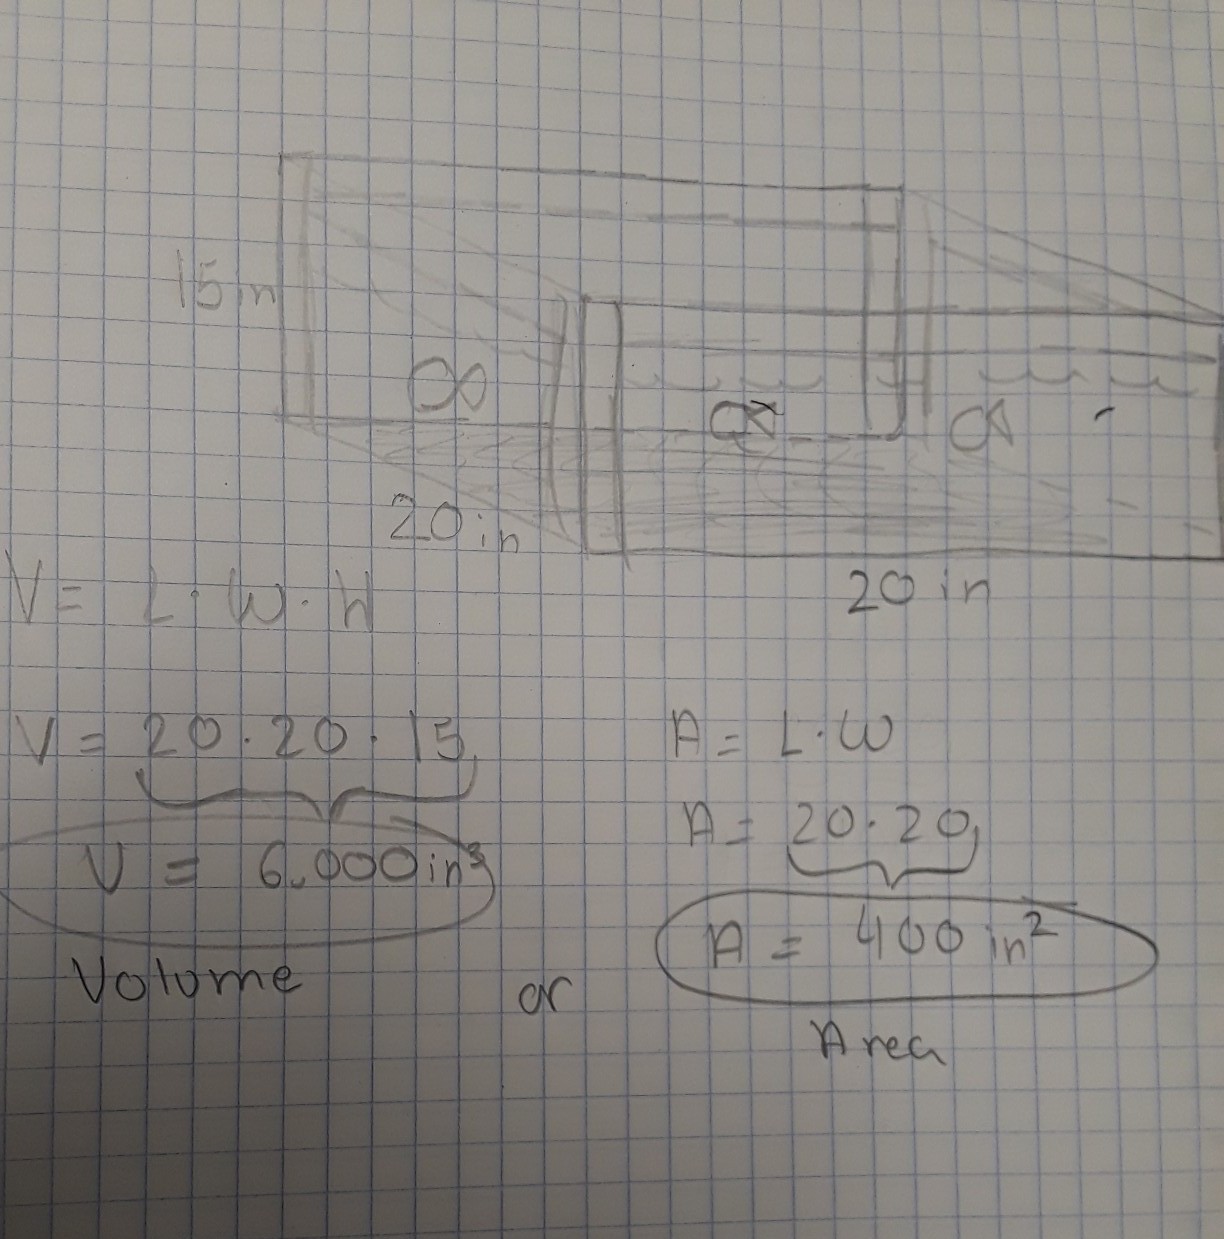 15 in
20 in
20 in
V = L · W · H
V = 20 · 20 · 15
V = 6.000 in³
Volume
or
A = L · W
A = 20 · 20
A = 400 in²
Area